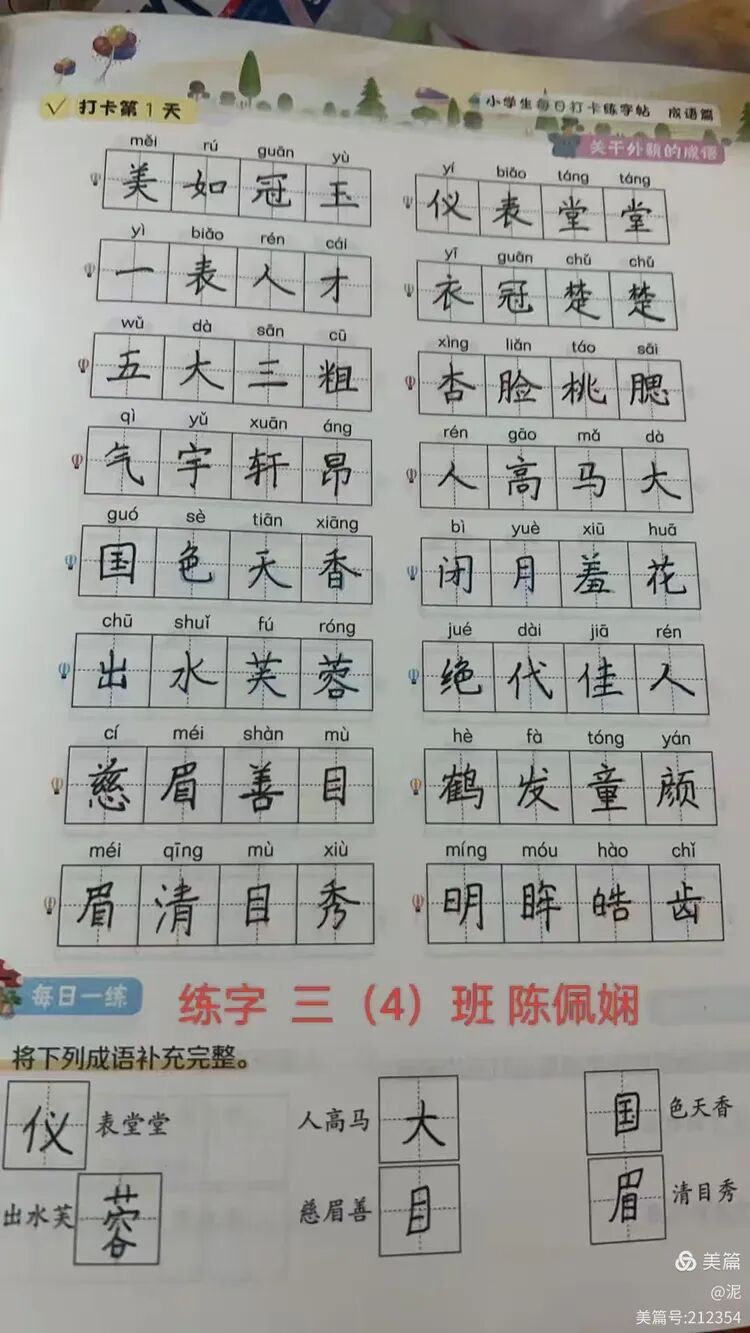 打卡第1天
小学生每日打卡练字帖 成语篇
关于外貌的成语
měi rú guān yù
美如冠玉
yí biǎo táng táng
仪表堂堂
yì biǎo rén cái
一表人才
yī guān chǔ chǔ
衣冠楚楚
wǔ dà sān cū
五大三粗
xìng liǎn táo sāi
杏脸桃腮
qì yǔ xuān áng
气宇轩昂
rén gāo mǎ dà
人高马大
guó sè tiān xiāng
国色天香
bì yuè xiū huā
闭月羞花
chū shuǐ fú róng
出水芙蓉
jué dài jiā rén
绝代佳人
cí méi shàn mù
慈眉善目
hè fà tóng yán
鹤发童颜
méi qīng mù xiù
眉清目秀
míng móu hào chǐ
明眸皓齿
每日一练
练字 三（4）班 陈佩娴
将下列成语补充完整。
仪表堂堂 人高马大 国色天香
出水芙蓉 慈眉善目 眉清目秀
美篇
@泥
美篇号:212354